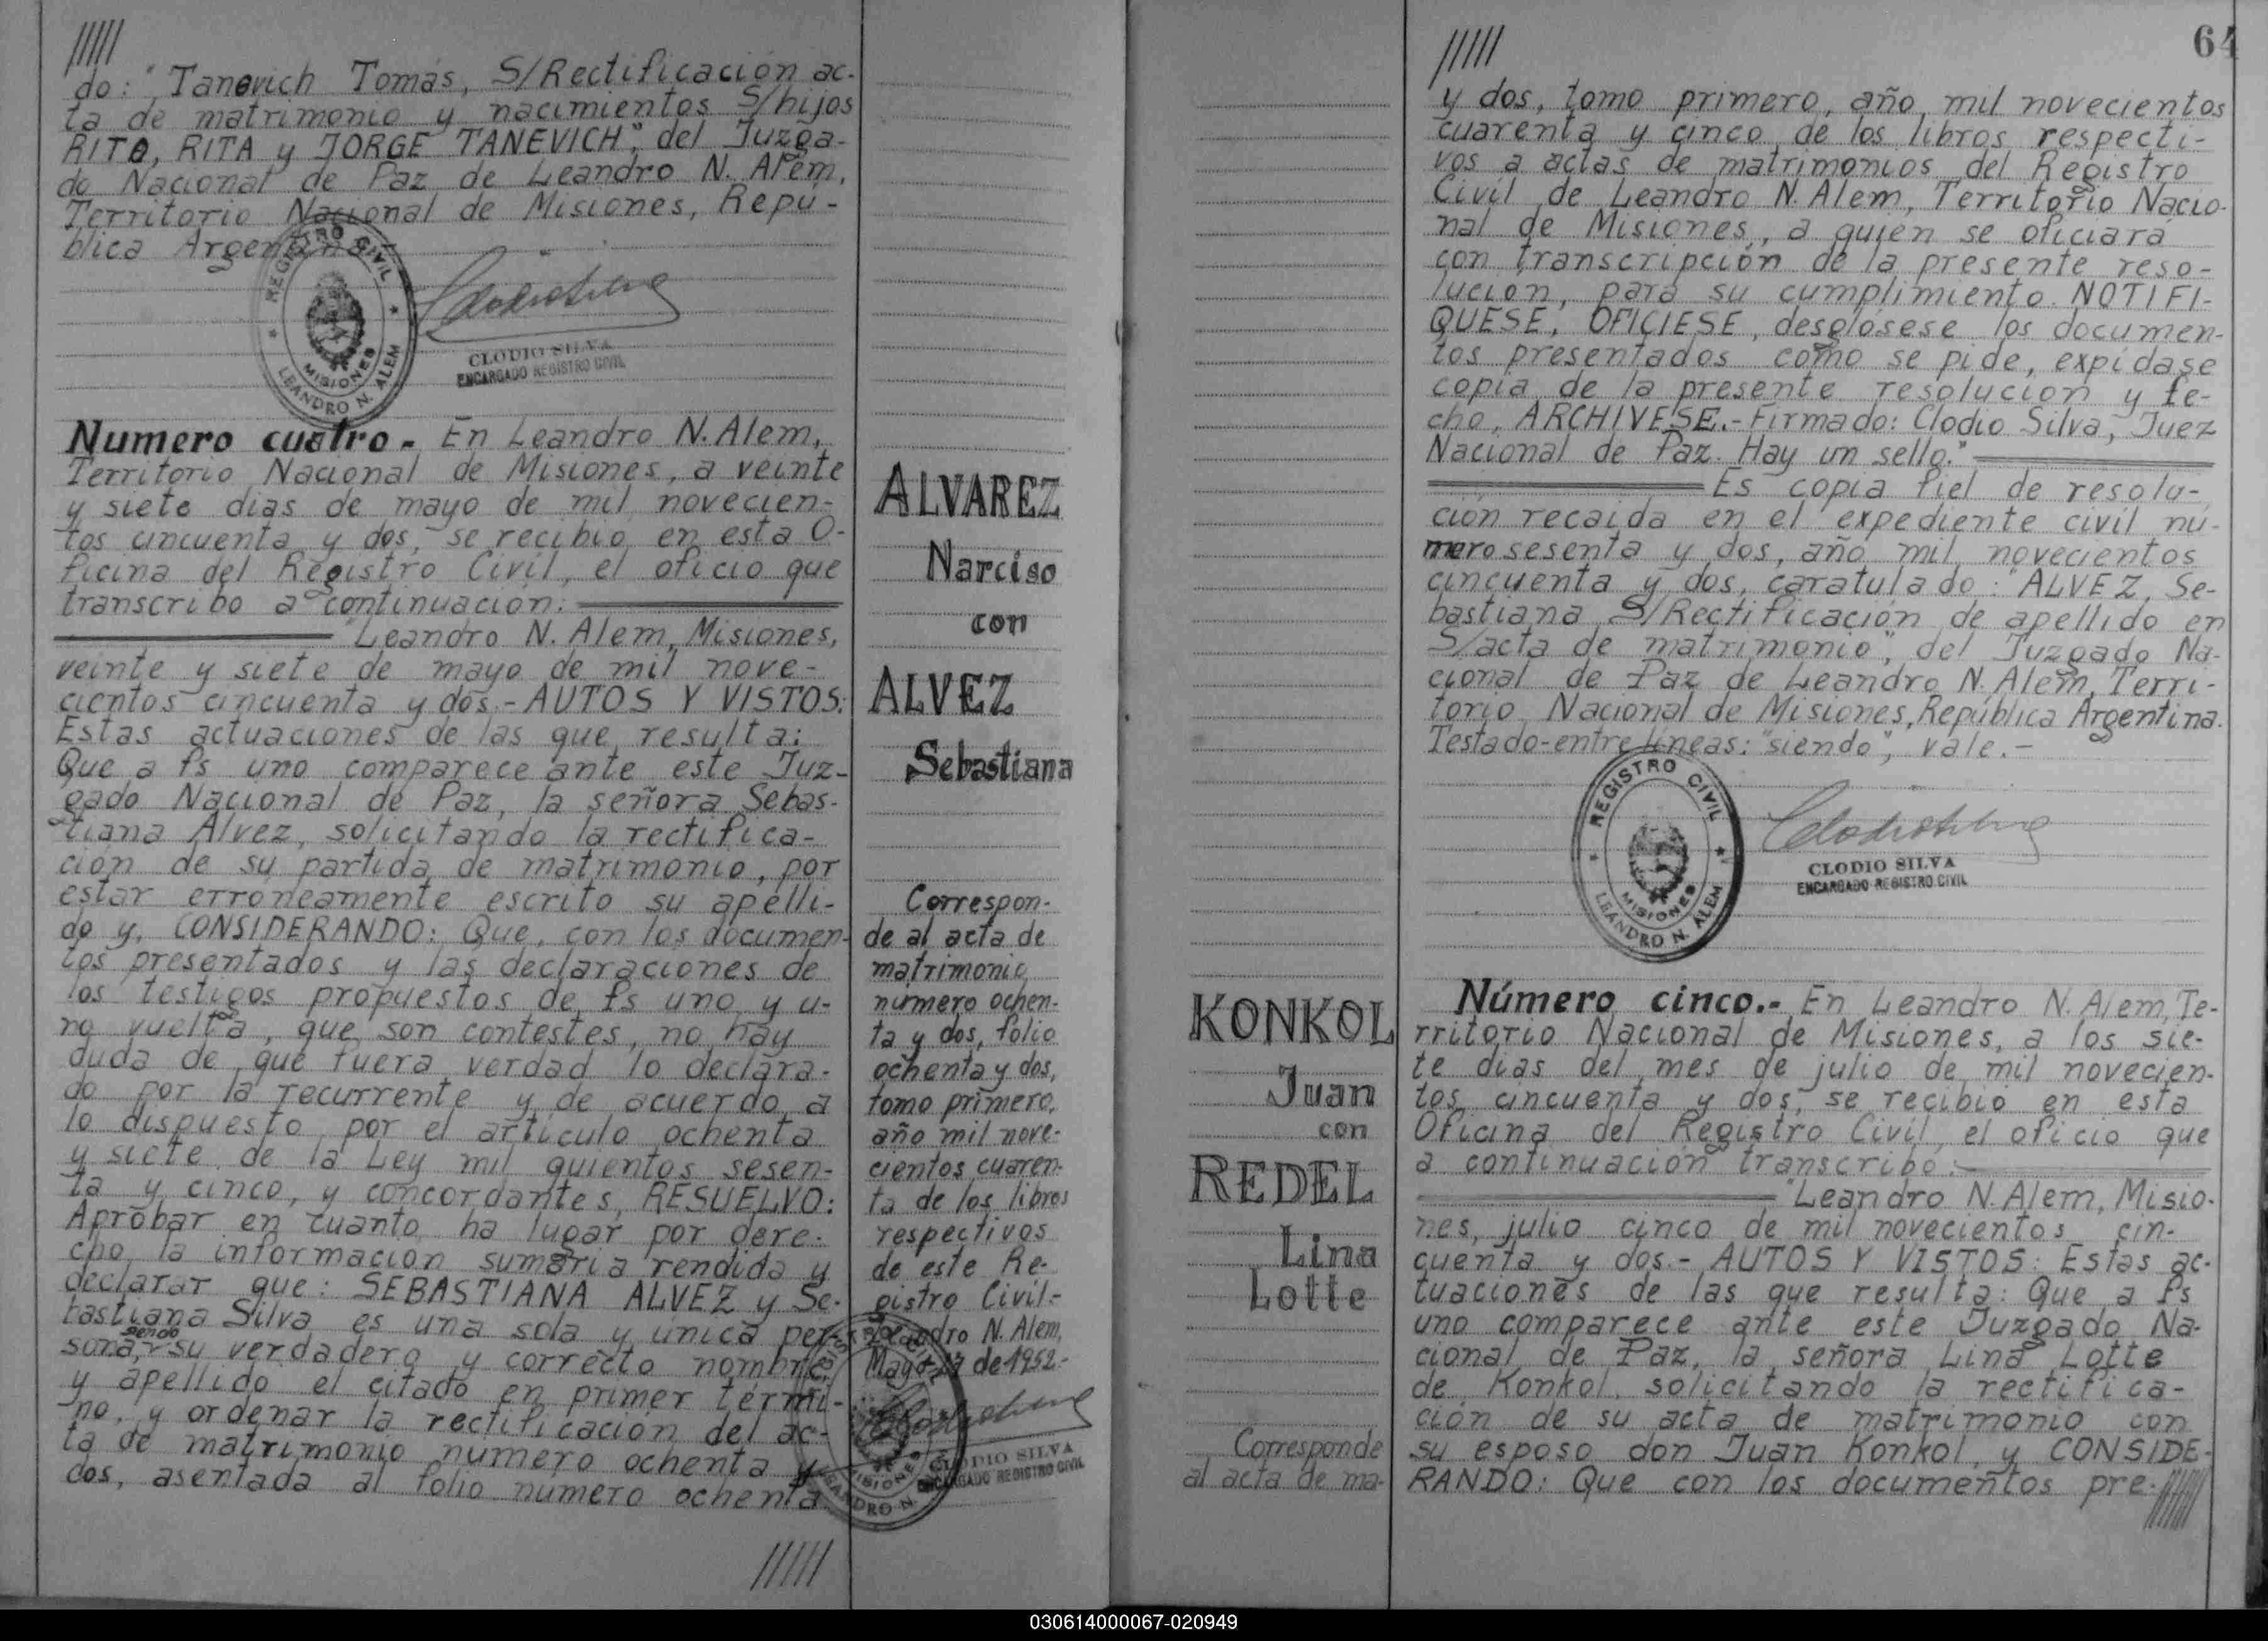 /////
do: "Tanevich Tomás, S/Rectificación ac-
ta de matrimonio y nacimientos S/hijos
RITO, RITA y JORGE TANEVICH", del Juzga-
do Nacional de Paz de Leandro N. Alem,
Territorio Nacional de Misiones, Repú-
blica Argentina.-
REGISTRO CIVIL
MISIONES
LEANDRO N. ALEM
CLODIO SILVA
ENCARGADO REGISTRO CIVIL
Numero cuatro.- En Leandro N. Alem,
Territorio Nacional de Misiones, a veinte
y siete dias de mayo de mil novecien-
tos cincuenta y dos, se recibio en esta O-
ficina del Registro Civil, el oficio que
transcribo a continuación:
"Leandro N. Alem, Misiones,
veinte y siete de mayo de mil nove-
cientos cincuenta y dos.- AUTOS Y VISTOS:
Estas actuaciones de las que resulta:
Que a fs uno comparece ante este Juz-
gado Nacional de Paz, la señora Sebas-
tiana Alvez, solicitando la rectifica-
ción de su partida de matrimonio, por
estar erroneamente escrito su apelli-
do y, CONSIDERANDO: Que, con los documen-
tos presentados y las declaraciones de
los testigos propuestos de fs uno y u-
no vuelta, que son contestes, no hay
duda de que fuera verdad lo declara-
do por la recurrente y de acuerdo a
lo dispuesto por el artículo ochenta
y siete de la Ley mil quientos sesen-
ta y cinco, y concordantes, RESUELVO:
Aprobar en cuanto ha lugar por dere-
cho la información sumaria rendida y
declarar que: SEBASTIANA ALVEZ y Se-
bastiana Silva es una sola y única per-
siendo
sona, su verdadero y correcto nombre
y apellido el citado en primer térmi-
no, y ordenar la rectificación del ac-
ta de matrimonio numero ochenta y
dos, asentada al folio numero ochenta
/////
ALVAREZ
Narciso
con
ALVEZ
Sebastiana
Correspon-
de al acta de
matrimonio
número ochen-
ta y dos, folio
ochenta y dos,
tomo primero,
año mil nove-
cientos cuaren-
ta de los libros
respectivos
de este Re-
gistro Civil.-
Leandro N. Alem,
Mayo 27 de 1952.-
CLODIO SILVA
ENCARGADO REGISTRO CIVIL
MISIONES
LEANDRO N.
64
/////
y dos, tomo primero, año mil novecientos
cuarenta y cinco de los libros respecti-
vos a actas de matrimonios del Registro
Civil de Leandro N. Alem, Territorio Nacio-
nal de Misiones, a quien se oficiará
con transcripción de la presente reso-
lución, para su cumplimiento. NOTIFI-
QUESE, OFICIESE, desglósese los documen-
tos presentados como se pide, expídase
copia de la presente resolución y fe-
cho, ARCHIVESE.- Firmado: Clodio Silva, Juez
Nacional de Paz. Hay un sello."
Es copia fiel de resolu-
ción recaída en el expediente civil nú-
mero sesenta y dos, año mil novecientos
cincuenta y dos, caratulado: "ALVEZ, Se-
bastiana S/Rectificación de apellido en
S/acta de matrimonio", del Juzgado Na-
cional de Paz de Leandro N. Alem, Terri-
torio Nacional de Misiones, República Argentina.
Testado-entre líneas: "siendo", vale.-
REGISTRO CIVIL
MISIONES
LEANDRO N. ALEM
CLODIO SILVA
ENCARGADO REGISTRO CIVIL
KONKOL
Juan
con
REDEL
Lina
Lotte
Corresponde
al acta de ma-
Número cinco.- En Leandro N. Alem, Te-
rritorio Nacional de Misiones, a los sie-
te dias del mes de julio de mil novecien-
tos cincuenta y dos, se recibió en esta
Oficina del Registro Civil, el oficio que
a continuación transcribo:
"Leandro N. Alem, Misio-
nes, julio cinco de mil novecientos cin-
cuenta y dos.- AUTOS Y VISTOS: Estas ac-
tuaciones de las que resulta: Que a fs
uno comparece ante este Juzgado Na-
cional de Paz, la señora Lina Lotte
de Konkol, solicitando la rectifica-
ción de su acta de matrimonio con
su esposo don Juan Konkol, y CONSIDE-
RANDO: Que con los documentos pre-
/////
030614000067-020949